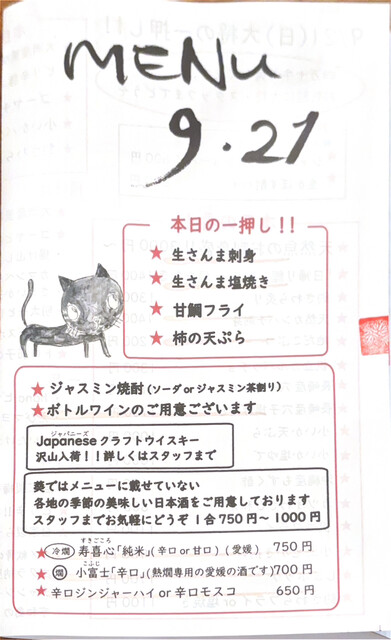 MENU
9.21
本日の一押し!!
★ 生さんま刺身
★ 生さんま塩焼き
★ 甘鯛フライ
★ 柿の天ぷら
★ ジャスミン焼酎(ソーダorジャスミン茶割り)
★ボトルワインのご用意ございます
ジャパニーズ
Japaneseクラフトウイスキー
沢山入荷!!詳しくはスタッフまで
葵ではメニューに載せていない
各地の季節の美味しい日本酒をご用意しております
スタッフまでお気軽にどうぞ 1合750円～1000円
すきごころ
★ 冷燗 寿喜心「純米」(辛口or甘口)(愛媛) 750円
こふじ
★ 燗 小富士「辛口」(熱燗専用の愛媛の酒です)700円
★ 辛口ジンジャーハイor辛口モスコ 650円